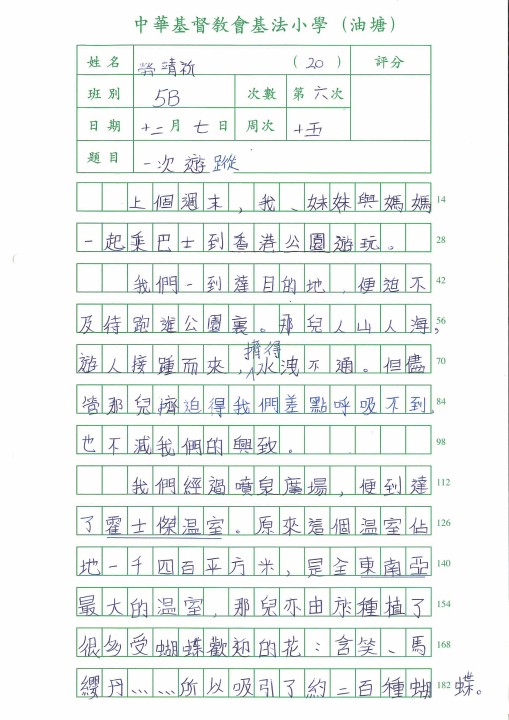 中華基督教會基法小學（油塘）
姓名 勞靖祈 （20） 評分
班別 5B 次數 第六次
日期 十二月七日 周次 十五
題目 一次遊蹤
上個週末，我、妹妹與媽媽 14
一起乘巴士到香港公園遊玩。 28
我們一到達目的地，便迫不 42
及待跑進公園裏。那兒人山人海， 56
遊人接踵而來，擠得水洩不通。但儘 70
管那兒擠迫得我們差點呼吸不到， 84
也不減我們的興致。 98
我們經過噴泉廣場，便到達 112
了霍士傑溫室。原來這個溫室佔 126
地一千四百平方米，是全東南亞 140
最大的溫室，那兒亦由於種植了 154
很多受蝴蝶歡迎的花：含笑、馬 168
纓丹……所以吸引了約二百種蝴蝶。 182